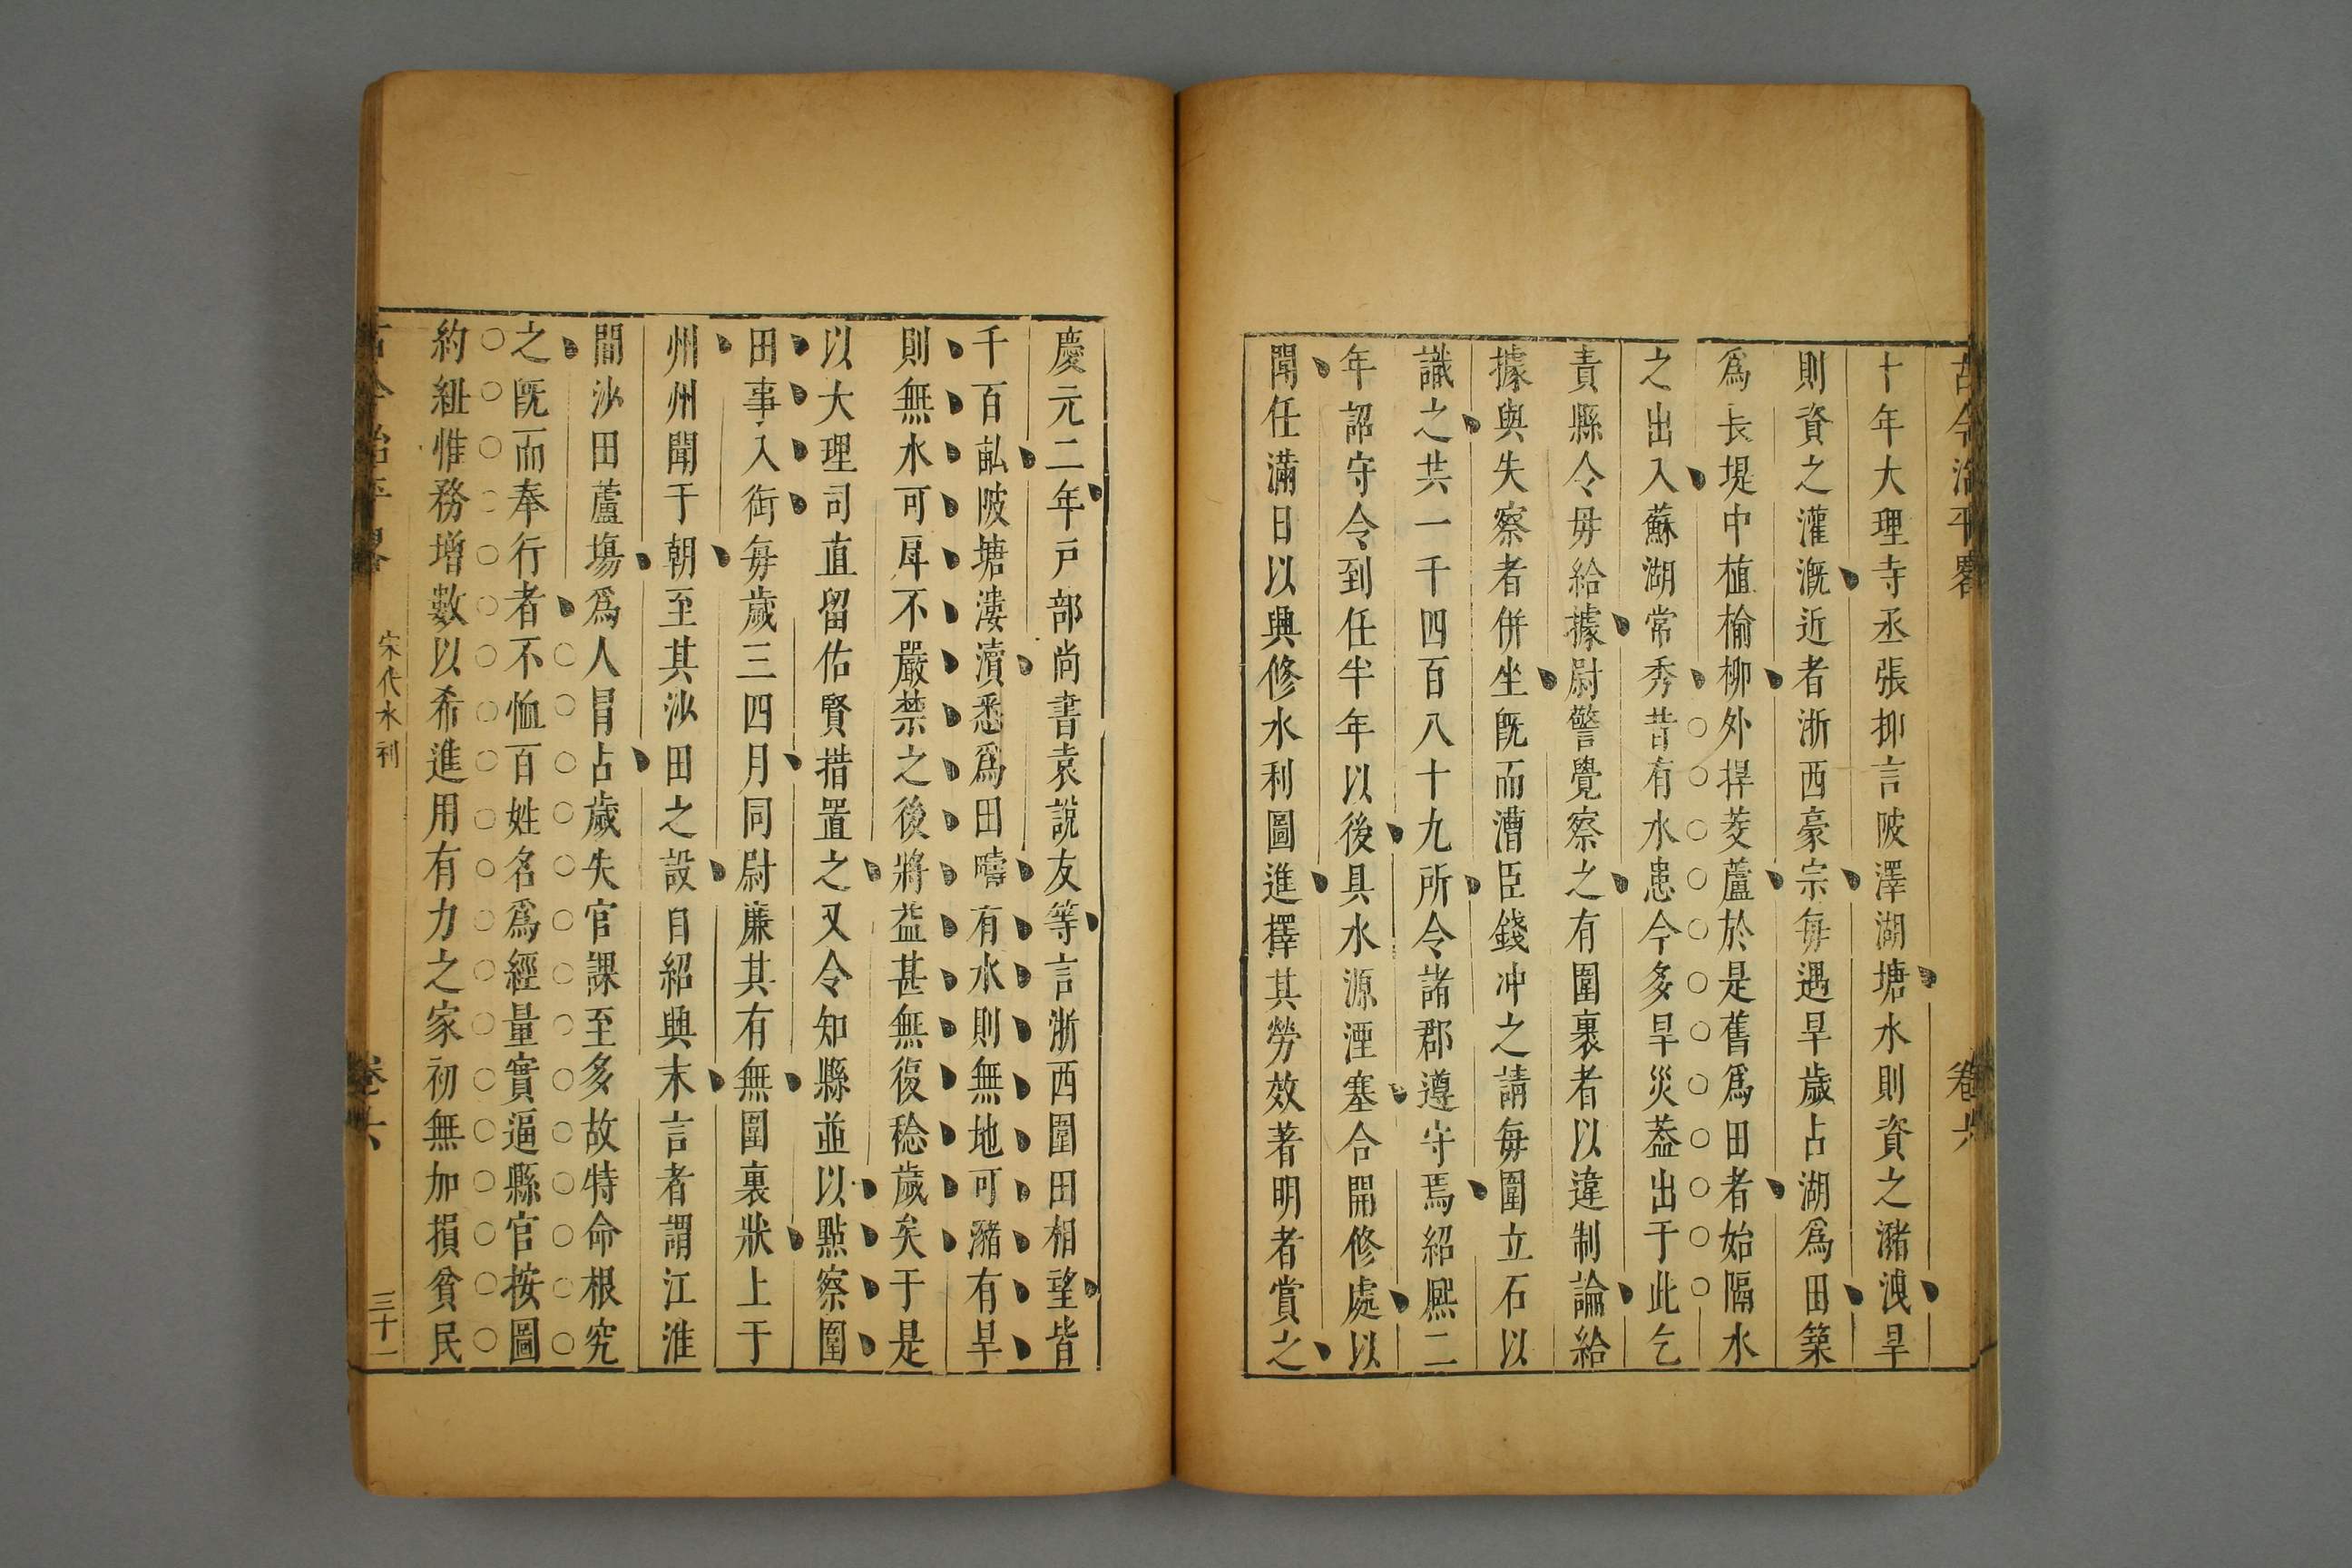 古今治平畧 卷六
十年大理寺丞張抑言陂澤湖塘水則資之瀦洩旱
則資之灌漑近者浙西豪宗毎遇旱歲占湖爲田築
爲長堤中植榆柳外捍茭蘆於是舊爲田者始隔水
之出入蘇湖常秀昔有水患今多旱災葢出于此乞
責縣令毋給據尉警覺察之有圍裹者以違制論給
據與失察者併坐旣而漕臣錢冲之請毎圍立石以
識之共一千四百八十九所令諸郡遵守焉紹熈二
年詔守令到任半年以後具水源湮塞合開修處以
聞任滿日以興修水利圖進擇其勞效著明者賞之
慶元二年戸部尚書袁說友等言浙西圍田相望皆
千百畝陂塘漊瀆悉爲田疇有水則無地可瀦有旱
則無水可戽不嚴禁之後將益甚無復稔歲矣于是
以大理司直留佑賢措置之又令知縣並以點察圍
田事入銜毎歲三四月同尉廉其有無圍裏狀上于
州州聞于朝至其沙田之設自紹興末言者謂江淮
間沙田蘆塲爲人冐占歲失官課至多故特命根究
之旣而奉行者不恤百姓名爲經量實逼縣官按圖
約紐惟務增數以希進用有力之家初無加損貧民
古今治平畧 宋代水利 卷六 三十一